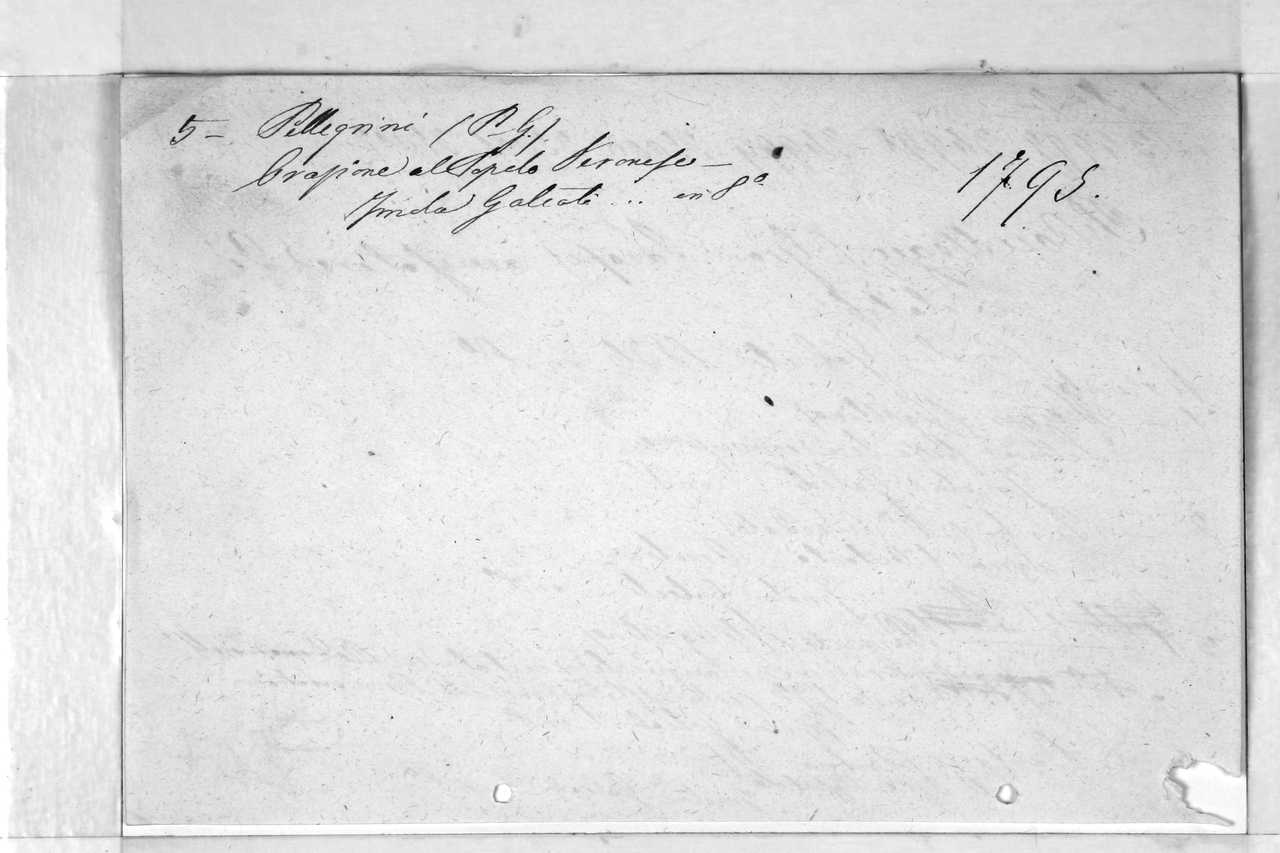 5 - Pellegrini (P. G.)
Orazione al Popolo Veronese -
Imola Galeati ... in 8º 1795.